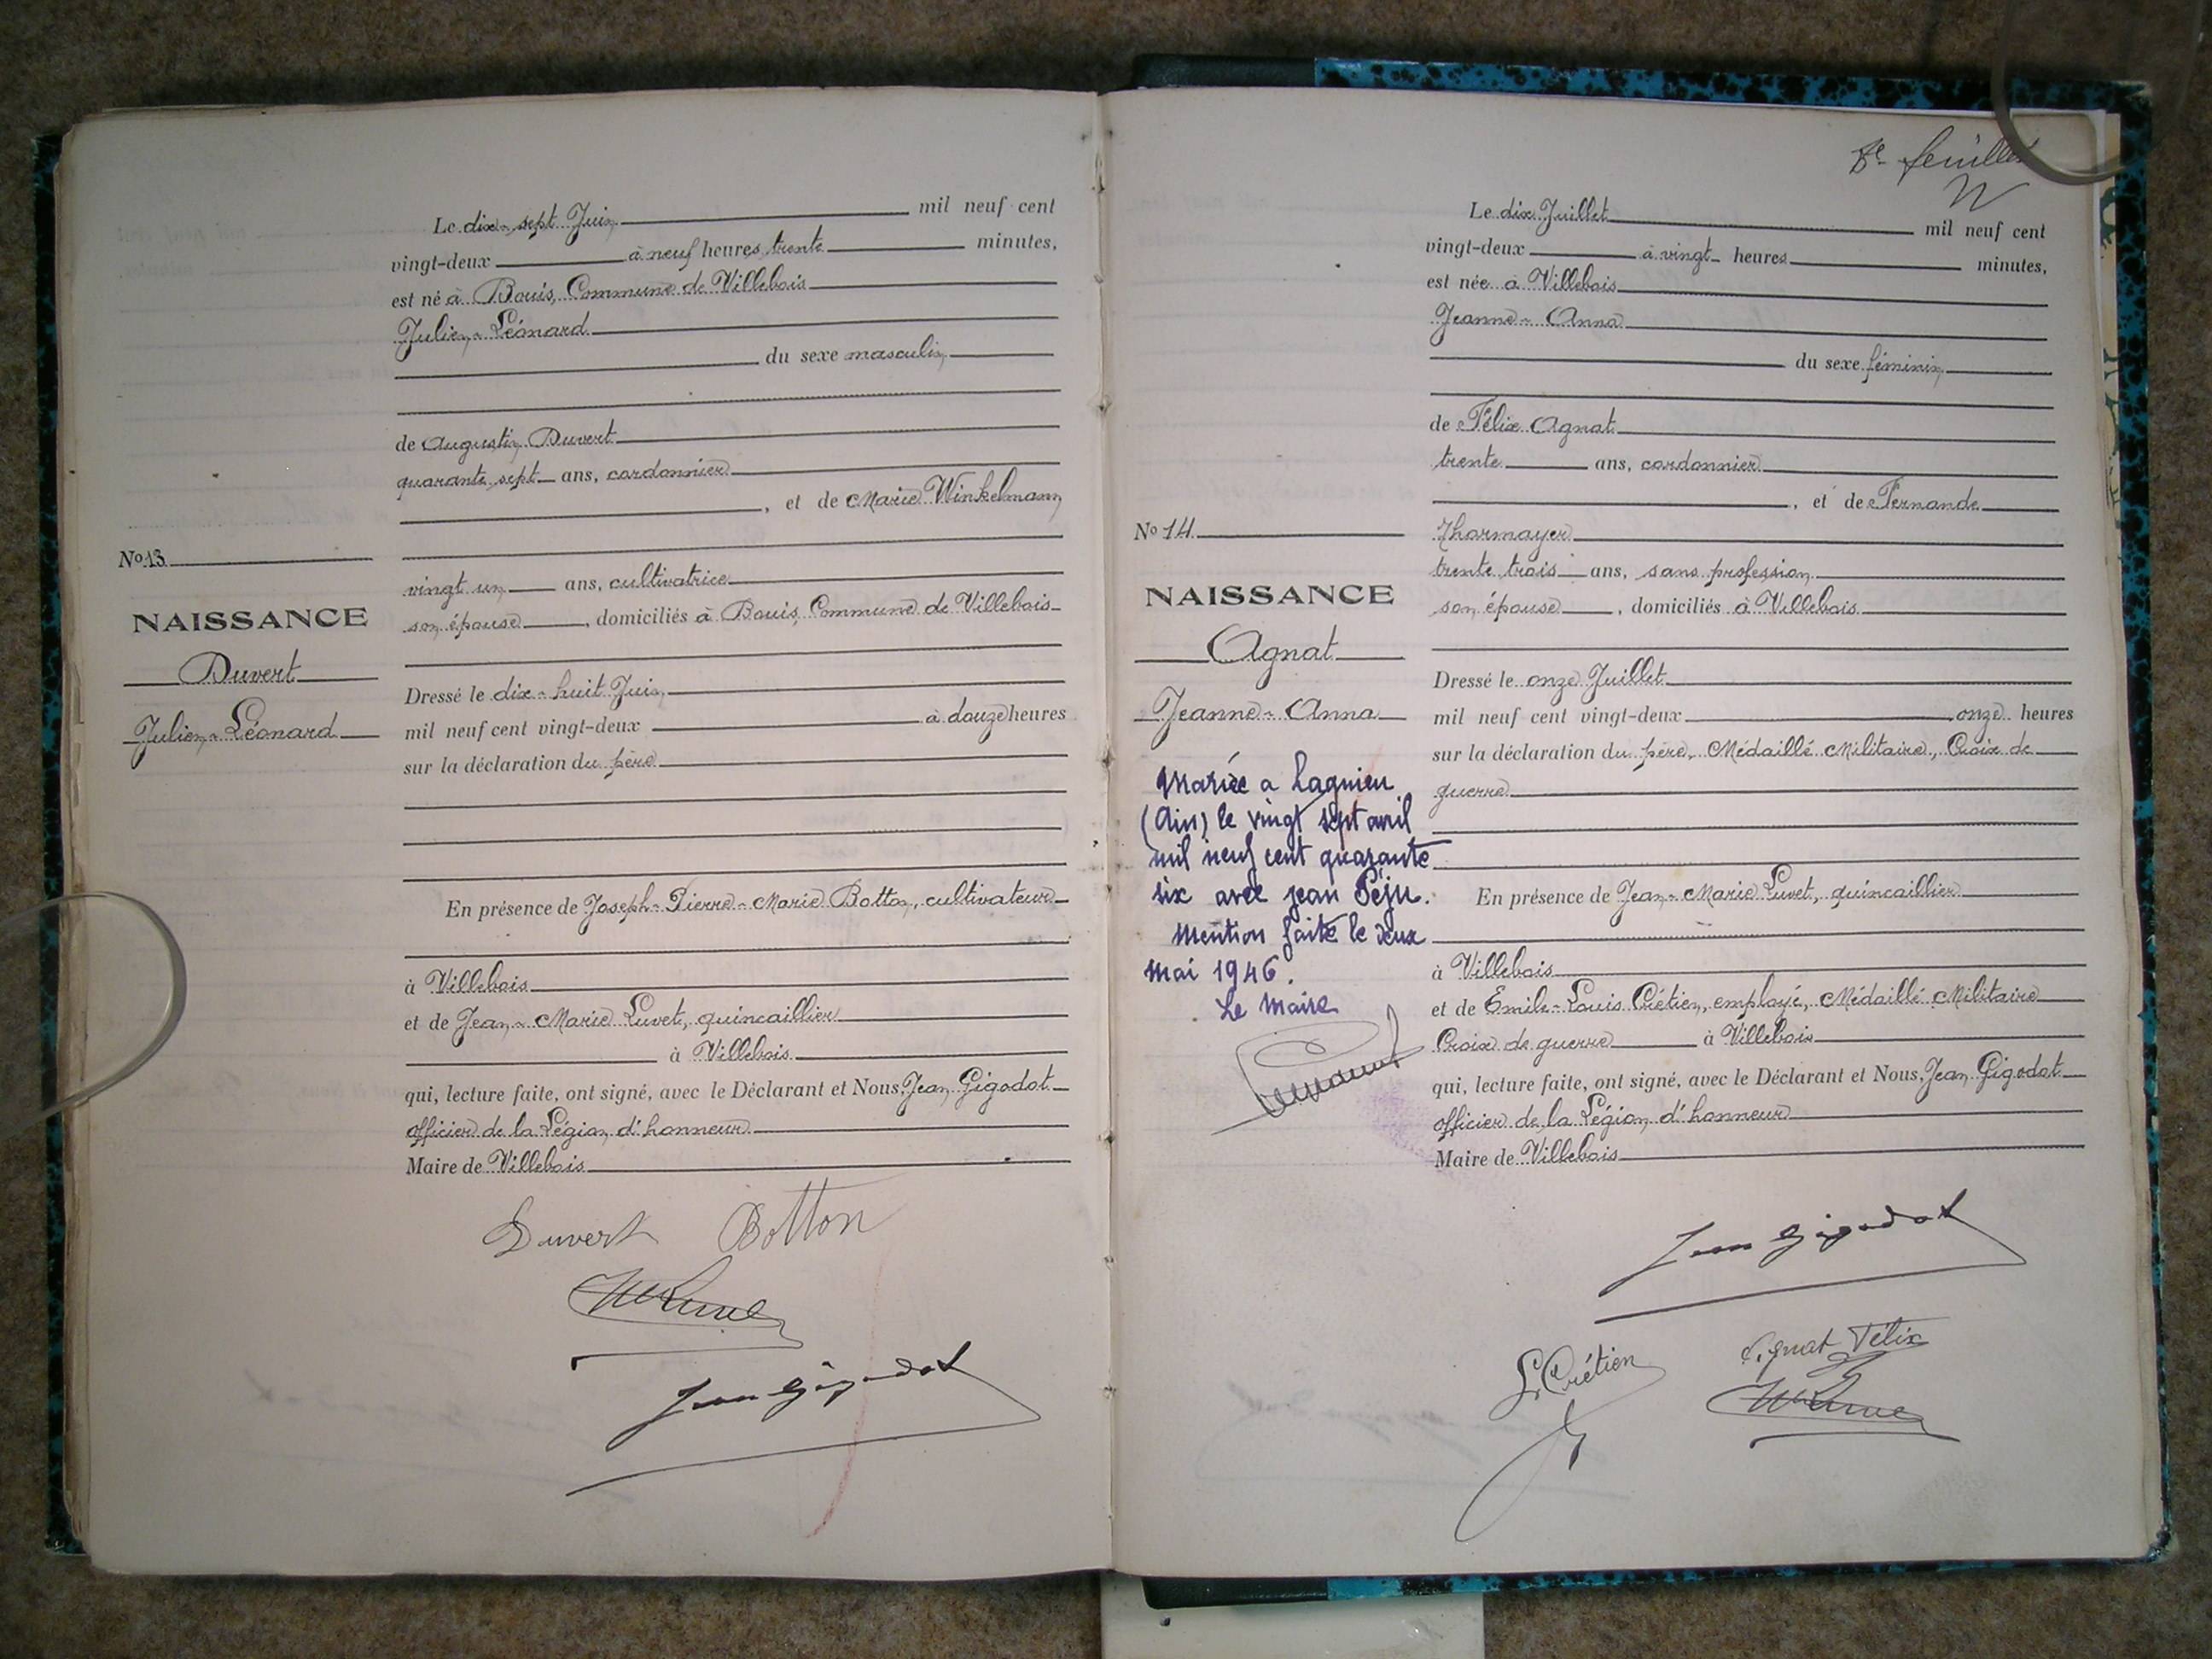 Le dix-sept Juin mil neuf cent
vingt-deux à neuf heures trente minutes,
est né à Bouis, Commune de Villebois
Julien-Léonard
du sexe masculin
de Augustin Duvert
quarante sept ans, cordonnier
, et de Marie Winkelmann
No 13
vingt un ans, cultivatrice
NAISSANCE
son épouse, domiciliés à Bouis, Commune de Villebois
Duvert
Julien-Léonard
Dressé le dix-huit Juin
mil neuf cent vingt-deux à douze heures
sur la déclaration du père
En présence de Joseph-Pierre-Marie Botton, cultivateur
à Villebois
et de Jean-Marie Luvet, quincaillier
à Villebois
qui, lecture faite, ont signé, avec le Déclarant et Nous, Jean Gigodot
officier de la Légion d'honneur
Maire de Villebois
Duvert Botton
Jean Gigodot
8e feuillet
Le dix Juillet mil neuf cent
vingt-deux à vingt heures minutes,
est née à Villebois
Jeanne-Anna
du sexe féminin
de Félix Agnat
trente ans, cordonnier
, et de Fernande
No 14
Tharmayer
trente trois ans, sans profession
NAISSANCE
son épouse, domiciliés à Villebois
Agnat
Jeanne-Anna
Dressé le onze Juillet
mil neuf cent vingt-deux onze heures
sur la déclaration du père, Médaillé Militaire, Croix de
guerre
Mariée a Lagnieu
(Ain) le vingt sept avril
mil neuf cent quarante
six avec jean Péju.
Mention faite le deux
mai 1946.
Le Maire
En présence de Jean-Marie Luvet, quincaillier
à Villebois
et de Emile-Louis Crétien, employé, Médaillé Militaire
Croix de guerre à Villebois
qui, lecture faite, ont signé, avec le Déclarant et Nous, Jean Gigodot
officier de la Légion d'honneur
Maire de Villebois
Jean Gigodot
L Crétien Agnat Félix